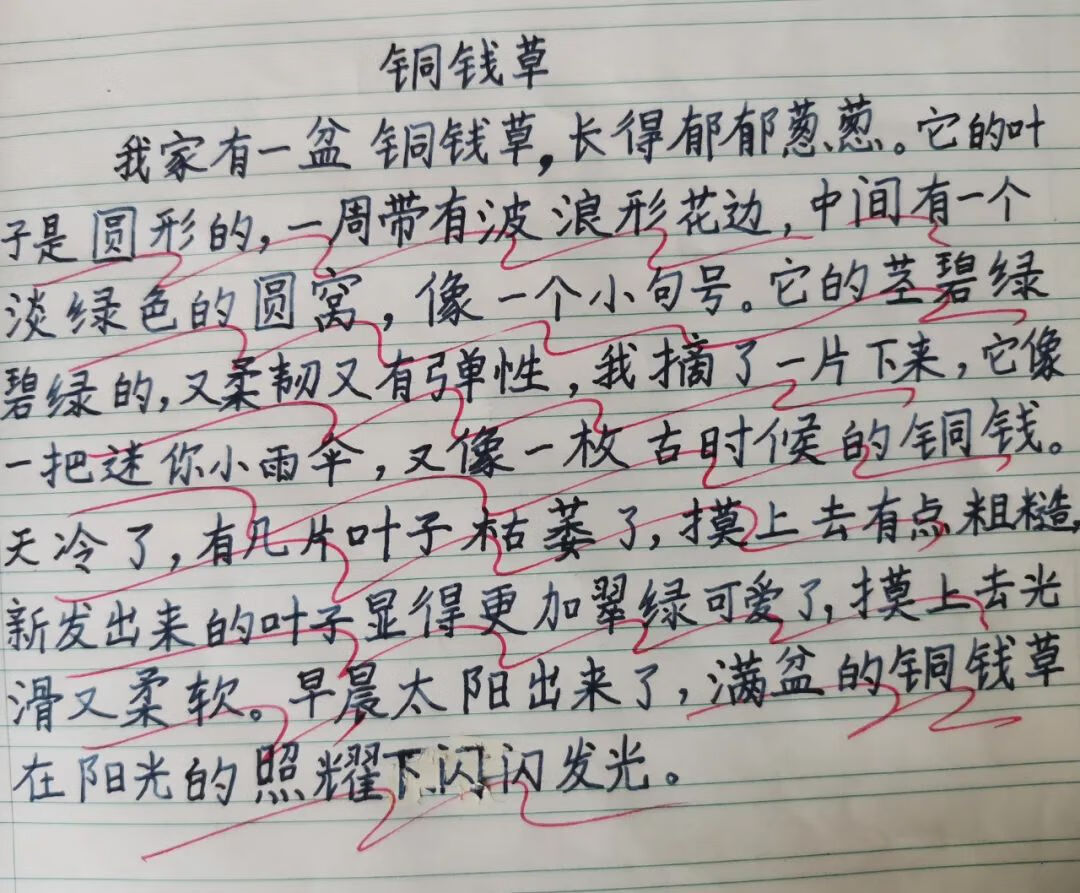 铜钱草
我家有一盆铜钱草,长得郁郁葱葱。它的叶
子是圆形的,一周带有波浪形花边,中间有一个
淡绿色的圆窝,像一个小句号。它的茎碧绿
碧绿的,又柔韧又有弹性,我摘了一片下来,它像
一把迷你小雨伞,又像一枚古时候的铜钱。
天冷了,有几片叶子枯萎了,摸上去有点粗糙,
新发出来的叶子显得更加翠绿可爱了,摸上去光
滑又柔软。早晨太阳出来了,满盆的铜钱草
在阳光的照耀下闪闪发光。